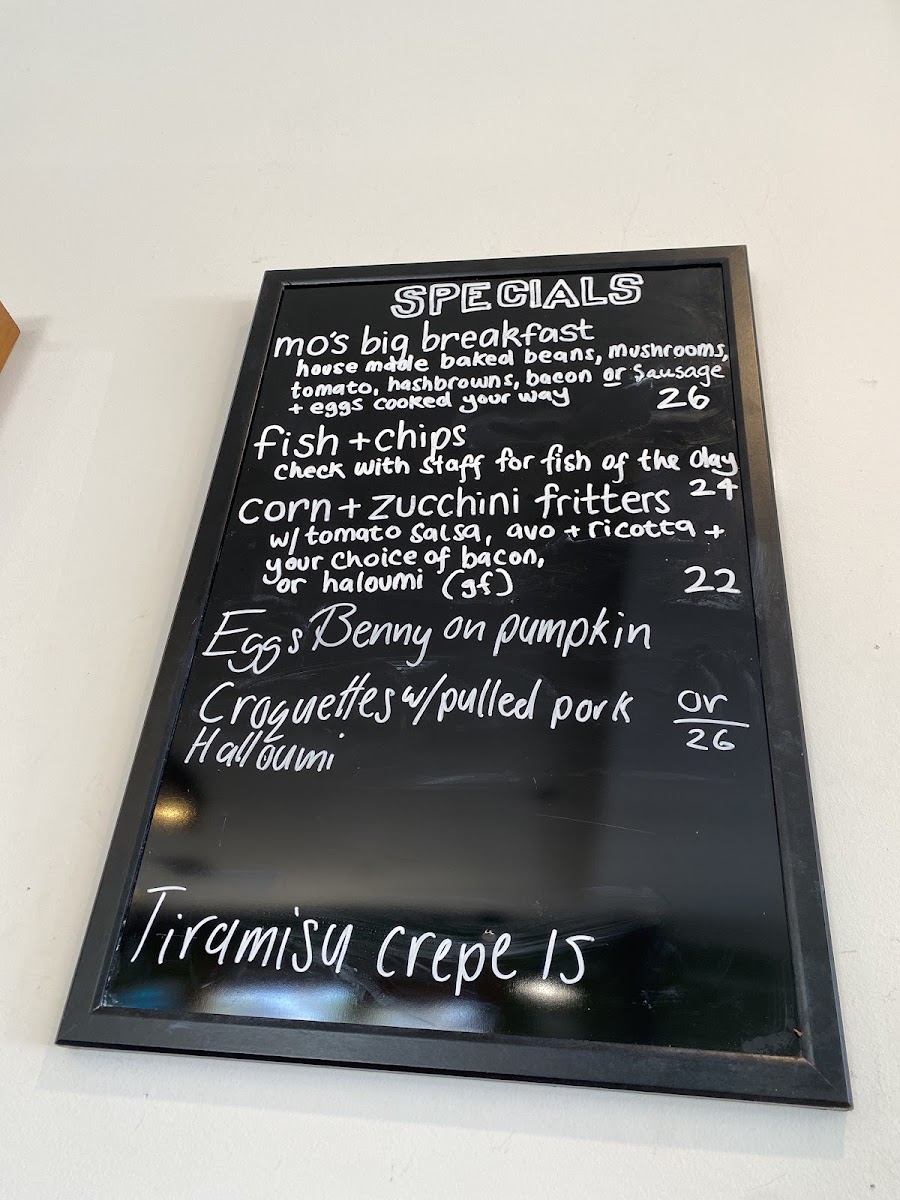 SPECIALS
mo's big breakfast
house made baked beans, mushrooms,
tomato, hashbrowns, bacon or sausage
+ eggs cooked your way 26
fish + chips
check with staff for fish of the day
24
corn + zucchini fritters
w/ tomato salsa, avo + ricotta +
your choice of bacon,
or haloumi (gf) 22
Eggs Benny on pumpkin
Croquettes w/ pulled pork or
Halloumi 26
Tiramisu crepe 15